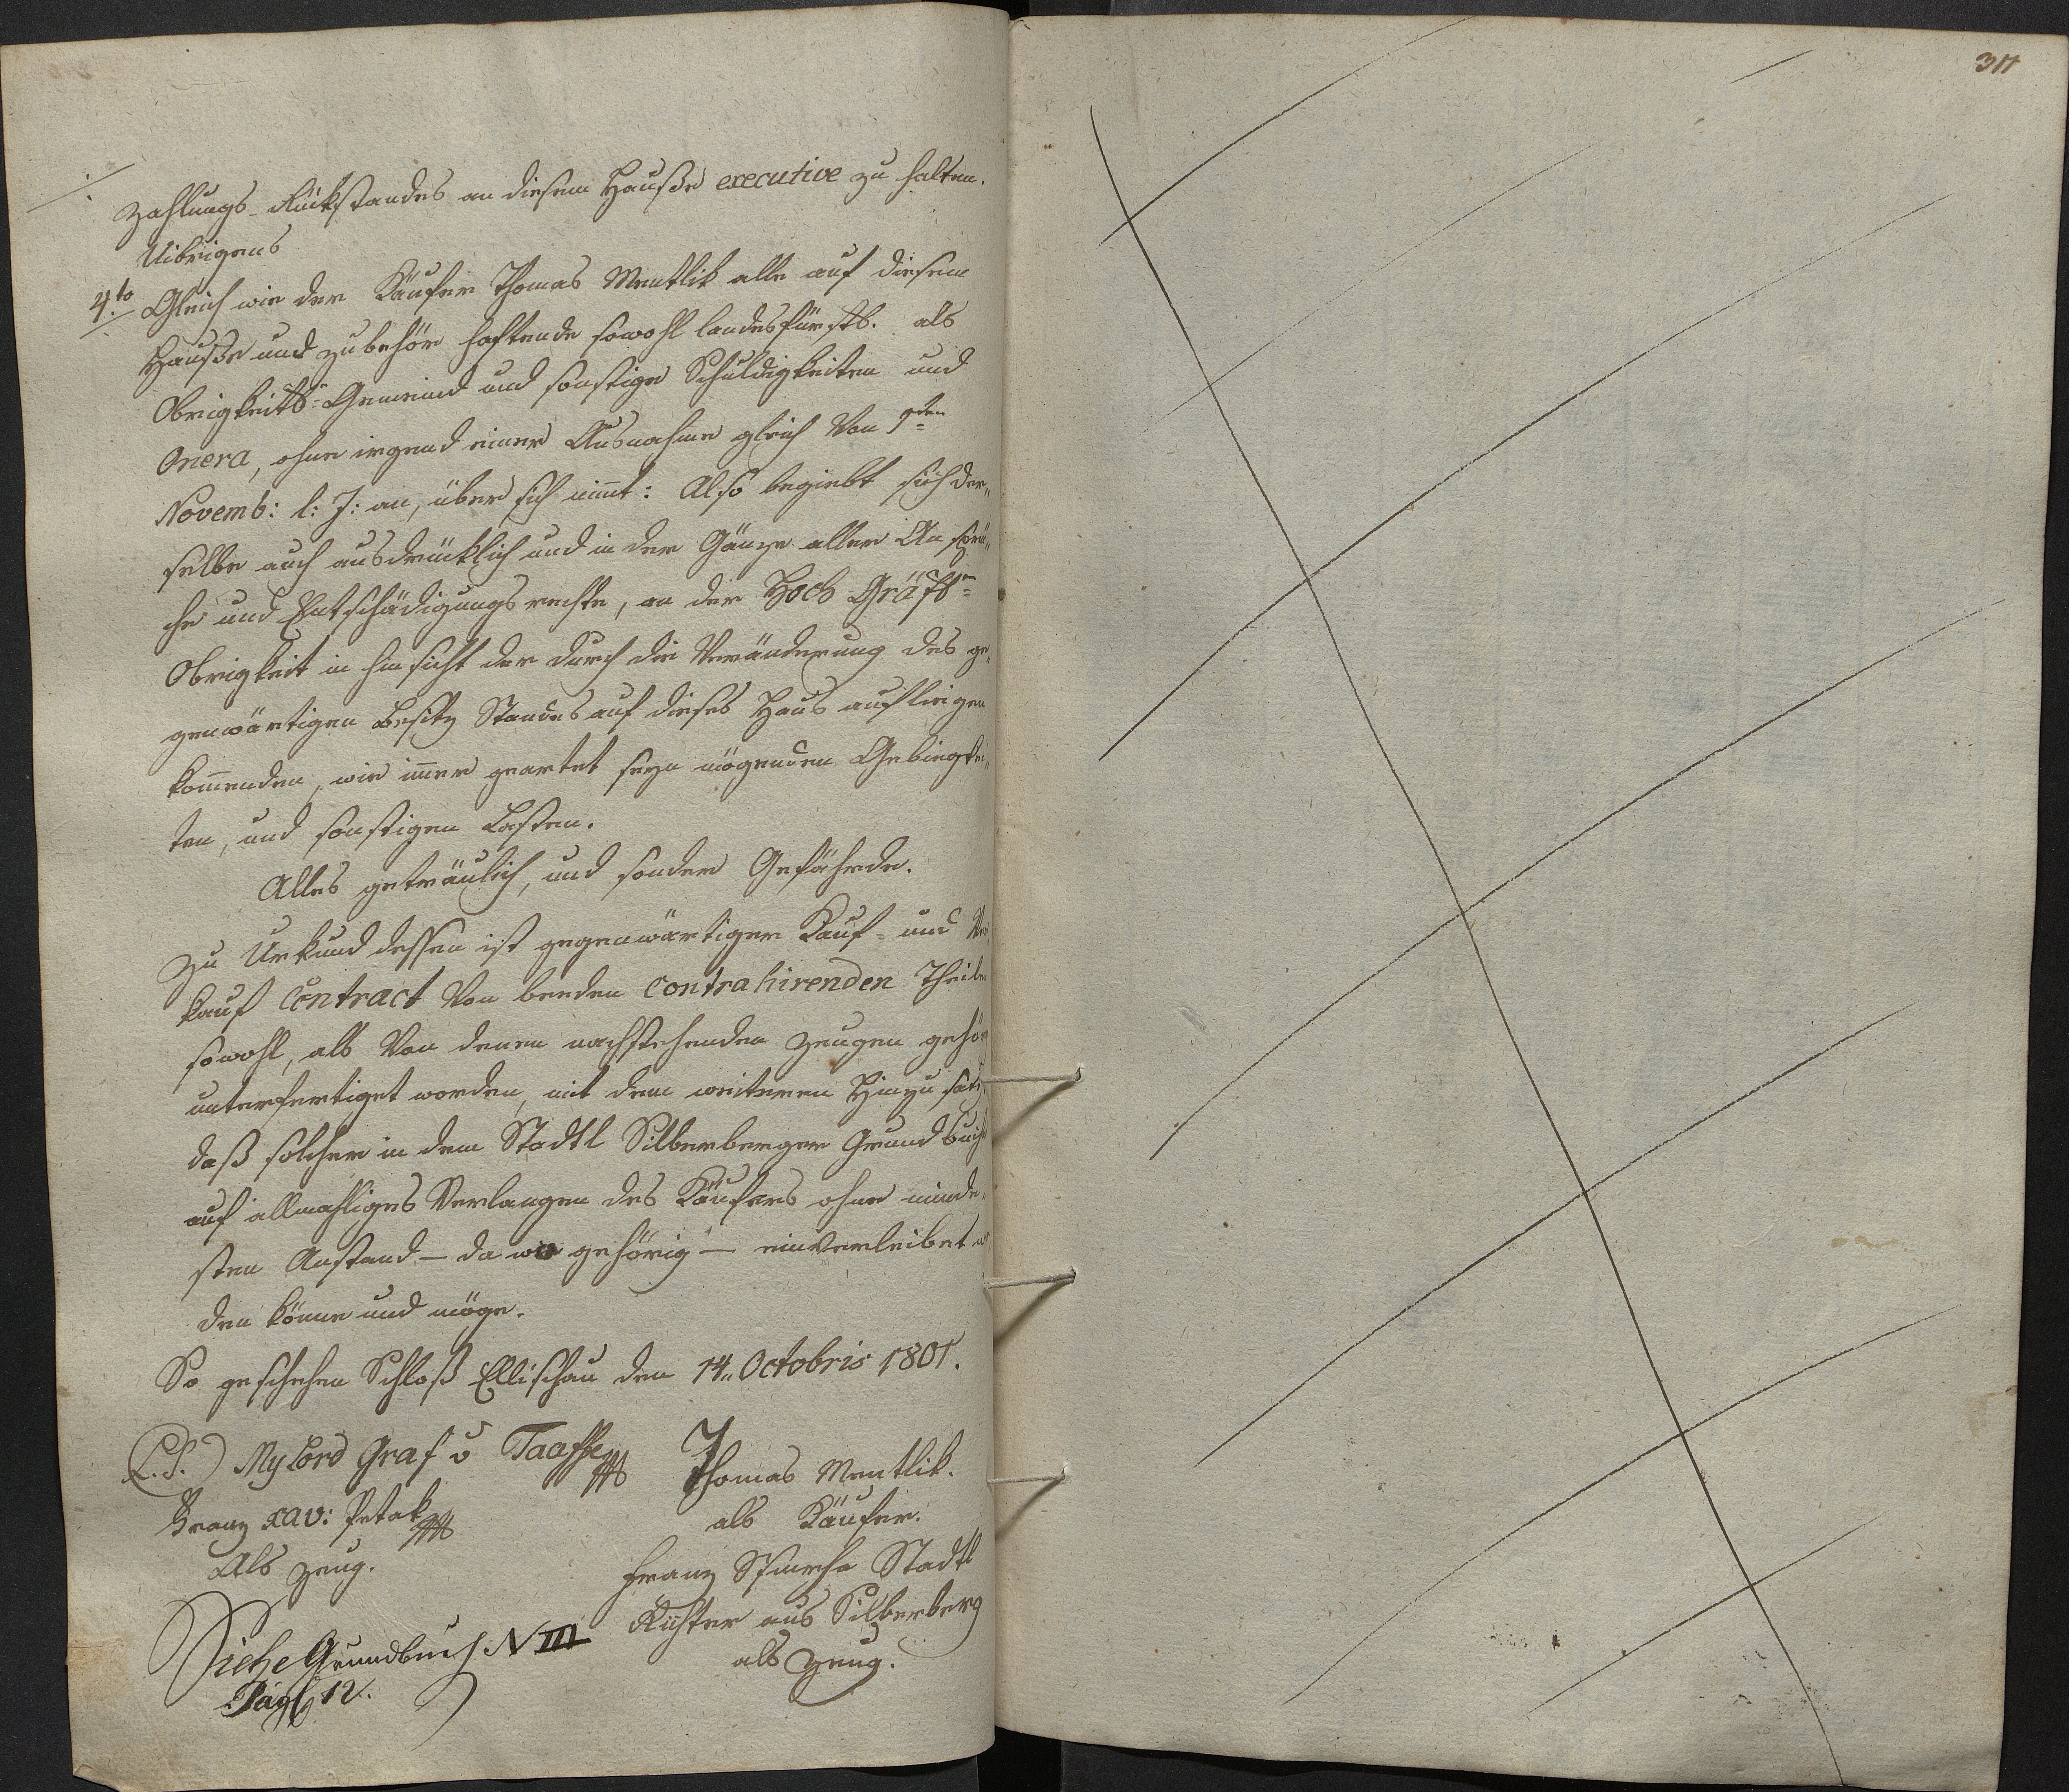 Zahlungs-Rükstandes an diesem Hauße executive zu halten.
Uibrigens
4.to Gleich wie der Käufer Thomas Mentlik alle auf diesem
Hauße und Zubehör haftende sowohl landesfürstl. als
Obrigkeitl- Gemeind und sonstige Schuldigkeiten und
Onera, ohne irgend einer Ausnahme gleich von 1ten
Novemb: l: J: an, über sich nimt: Also begiebt sich der„
selbe auch ausdrücklich und in der Gänze aller Ansprü„
che und Entschädigungsrechte, an der Hoch Gräfl-
Obrigkeit in hinsicht der durch die Veränderung des ge„
genwärtigen Besitz Standes auf dieses Haus aufliegen
komenden, wie imer geartet seyn mögenden Gebiegkei„
ten, und sonstigen Lasten.
Alles geträulich, und sonder Gefährde.
Zu Urkund dessen ist gegenwärtiger Kauf- und Ver
kauf Contract von beeden contrahirenden Theilen
sowohl, als von denen nachstehenden Zeugen gehör
unterfertiget worden, mit dem weiteren Hinzusatz
daß solcher in dem Stadtl Silberberger Grundbuch
auf allmahliges Verlangen des Käufers ohne minde„
sten Anstand – da wo gehörig – einverleibet w
den könne und möge.
So geschehen Schloß Ellischau den 14„ Octobris 1801.
(L.S.) Mylord Graf v Taaffe Thomas Mentlik.
Franz Xav: Petak als Käufer.
Als Zeug. Franz Stadtl
Siehe Grundbuch N III Richter aus Silberberg
Pag 12. als Zeug.
311